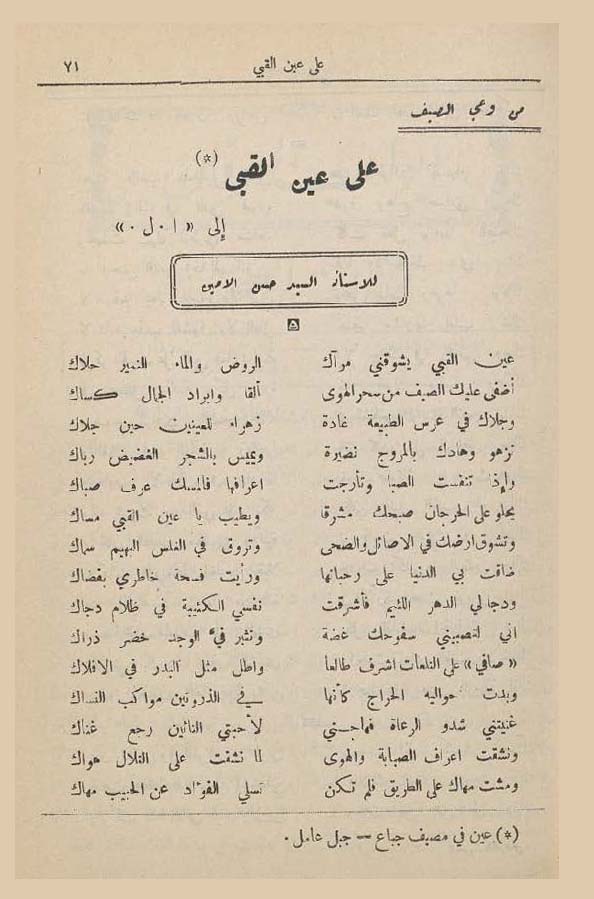 على عين القبي ٧١
من وحي الصيف
على عين القبي (*)
إلى « ا . ل . »
للاستاذ السيد حسن الامين
عين القبي يشوقني مرآك الروض والماء النمير حلاك
أضفى عليك الصيف من سحر الهوى ألقا وابراد الجمال كساك
وجلاك في عرس الطبيعة غادة زهراء للعينين حين جلاك
تزهو وهادك بالمروج نضيرة ويميس بالشجر الغضيض رباك
وإذا تنفست الصبا وتأرجت اعرافها فالمسك عرف صباك
يحلو على الحرجان صبحك مشرقا ويطيب يا عين القبي مساك
وتشوق ارضك في الاصائل والضحى وتروق في الغلس البهيم سماك
ضاقت بي الدنيا على رحباتها ورأيت فسحة خاطري بفضاك
ودجا لي الدهر اللئيم فأشرقت نفسي الكئيبة في ظلام دجاك
اني لتصبيني سفوحك غضة وتثير فيّ الوجد خضر ذراك
« صافي » على التلعات اشرف طالعا واطل مثل البدر في الافلاك
وبدت حواليه الحراج كأنها في الذروتين مواكب النساك
غنيتني شدو الرعاة فهاجني لأحبتي النائين رجع غناك
ونشقت اعراف الصبابة والهوى لما نشقت على التلال هواك
ومشت مهاك على الطريق فلم تكن تسلي الفؤاد عن الحبيب مهاك
(*) عين في مصيف جباع — جبل عامل .